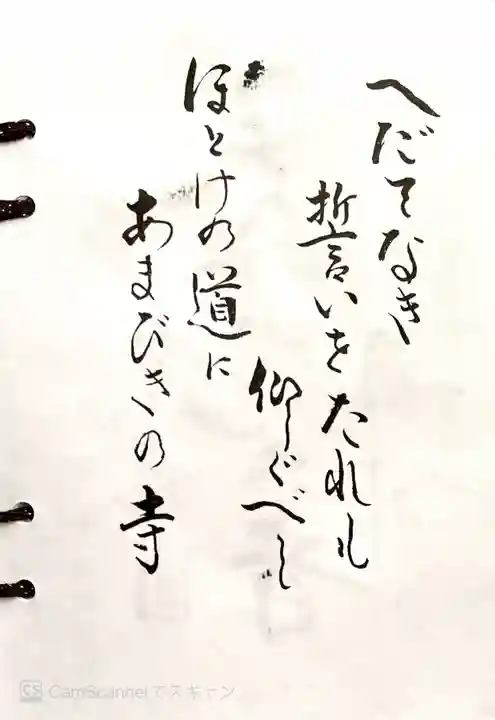 へだてなき
誓いをたれも
仰ぐべし
ほとけの道に
あまびきの寺
CS CamScannerでスキャン